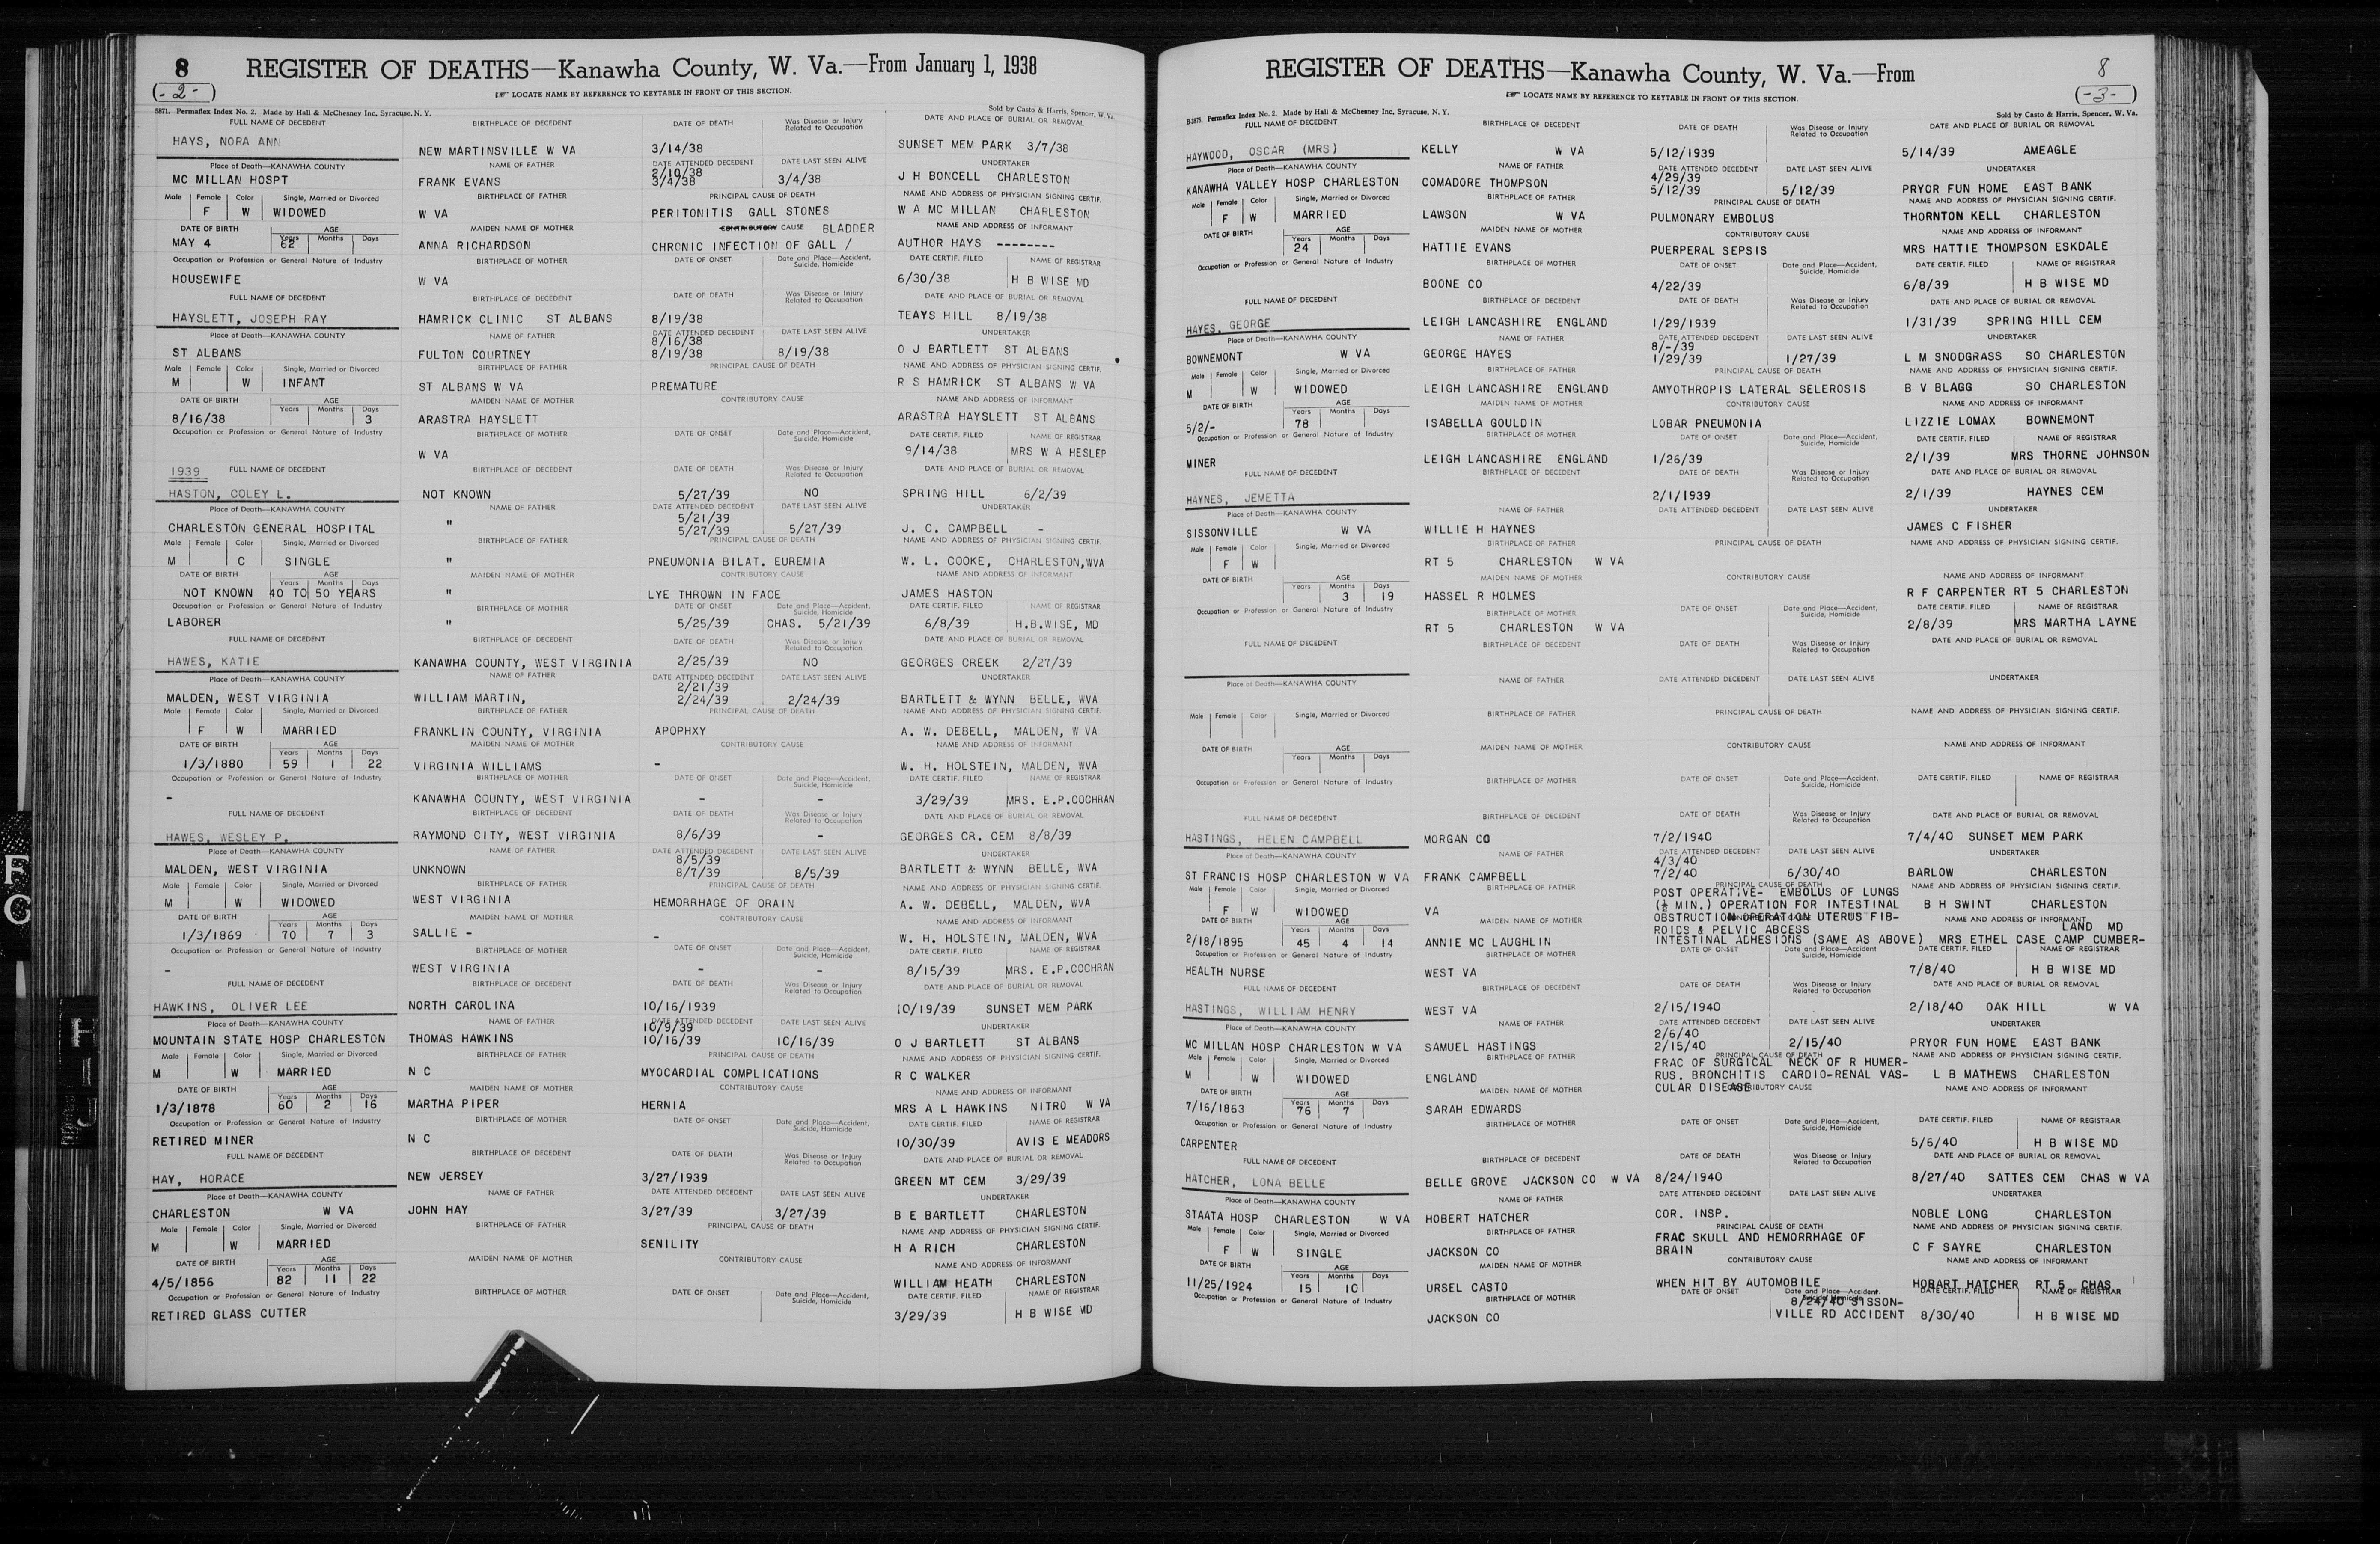 8
(-2-)
REGISTER OF DEATHS—Kanawha County, W. Va.—From January 1, 1938
LOCATE NAME BY REFERENCE TO KEYTABLE IN FRONT OF THIS SECTION.
5871. Permaflex Index No. 2. Made by Hall & McChesney Inc, Syracuse, N. Y. Sold by Casto & Harris, Spencer, W. Va.
FULL NAME OF DECEDENT BIRTHPLACE OF DECEDENT DATE OF DEATH Was Disease or Injury Related to Occupation DATE AND PLACE OF BURIAL OR REMOVAL
HAYS, NORA ANN NEW MARTINSVILLE W VA 3/14/38 SUNSET MEM PARK 3/7/38
Place of Death—KANAWHA COUNTY NAME OF FATHER DATE ATTENDED DECEDENT DATE LAST SEEN ALIVE UNDERTAKER
MC MILLAN HOSPT FRANK EVANS 2/10/38 3/4/38 3/4/38 J H BONCELL CHARLESTON
Male Female Color Single, Married or Divorced BIRTHPLACE OF FATHER PRINCIPAL CAUSE OF DEATH NAME AND ADDRESS OF PHYSICIAN SIGNING CERTIF.
F W WIDOWED W VA PERITONITIS GALL STONES W A MC MILLAN CHARLESTON
DATE OF BIRTH AGE Years Months Days MAIDEN NAME OF MOTHER CONTRIBUTORY CAUSE BLADDER NAME AND ADDRESS OF INFORMANT
MAY 4 62 ANNA RICHARDSON CHRONIC INFECTION OF GALL / AUTHOR HAYS --------
Occupation or Profession or General Nature of Industry BIRTHPLACE OF MOTHER DATE OF ONSET Date and Place—Accident, Suicide, Homicide DATE CERTIF. FILED NAME OF REGISTRAR
HOUSEWIFE W VA 6/30/38 H B WISE MD
FULL NAME OF DECEDENT BIRTHPLACE OF DECEDENT DATE OF DEATH Was Disease or Injury Related to Occupation DATE AND PLACE OF BURIAL OR REMOVAL
HAYSLETT, JOSEPH RAY HAMRICK CLINIC ST ALBANS 8/19/38 TEAYS HILL 8/19/38
Place of Death—KANAWHA COUNTY NAME OF FATHER DATE ATTENDED DECEDENT DATE LAST SEEN ALIVE UNDERTAKER
ST ALBANS FULTON COURTNEY 8/16/38 8/19/38 8/19/38 O J BARTLETT ST ALBANS
Male Female Color Single, Married or Divorced BIRTHPLACE OF FATHER PRINCIPAL CAUSE OF DEATH NAME AND ADDRESS OF PHYSICIAN SIGNING CERTIF.
M W INFANT ST ALBANS W VA PREMATURE R S HAMRICK ST ALBANS W VA
DATE OF BIRTH AGE Years Months Days MAIDEN NAME OF MOTHER CONTRIBUTORY CAUSE NAME AND ADDRESS OF INFORMANT
8/16/38 3 ARASTRA HAYSLETT ARASTRA HAYSLETT ST ALBANS
Occupation or Profession or General Nature of Industry BIRTHPLACE OF MOTHER DATE OF ONSET Date and Place—Accident, Suicide, Homicide DATE CERTIF. FILED NAME OF REGISTRAR
W VA 9/14/38 MRS W A HESLEP
1939 FULL NAME OF DECEDENT BIRTHPLACE OF DECEDENT DATE OF DEATH Was Disease or Injury Related to Occupation DATE AND PLACE OF BURIAL OR REMOVAL
HASTON, COLEY L. NOT KNOWN 5/27/39 NO SPRING HILL 6/2/39
Place of Death—KANAWHA COUNTY NAME OF FATHER DATE ATTENDED DECEDENT DATE LAST SEEN ALIVE UNDERTAKER
CHARLESTON GENERAL HOSPITAL " 5/21/39 5/27/39 5/27/39 J. C. CAMPBELL -
Male Female Color Single, Married or Divorced BIRTHPLACE OF FATHER PRINCIPAL CAUSE OF DEATH NAME AND ADDRESS OF PHYSICIAN SIGNING CERTIF.
M C SINGLE " PNEUMONIA BILAT. EUREMIA W. L. COOKE, CHARLESTON,WVA
DATE OF BIRTH AGE Years Months Days MAIDEN NAME OF MOTHER CONTRIBUTORY CAUSE NAME AND ADDRESS OF INFORMANT
NOT KNOWN 40 TO 50 YEARS " LYE THROWN IN FACE JAMES HASTON
Occupation or Profession or General Nature of Industry BIRTHPLACE OF MOTHER DATE OF ONSET Date and Place—Accident, Suicide, Homicide DATE CERTIF. FILED NAME OF REGISTRAR
LABORER " 5/25/39 CHAS. 5/21/39 6/8/39 H.B.WISE, MD
FULL NAME OF DECEDENT BIRTHPLACE OF DECEDENT DATE OF DEATH Was Disease or Injury Related to Occupation DATE AND PLACE OF BURIAL OR REMOVAL
HAWES, KATIE KANAWHA COUNTY, WEST VIRGINIA 2/25/39 NO GEORGES CREEK 2/27/39
Place of Death—KANAWHA COUNTY NAME OF FATHER DATE ATTENDED DECEDENT DATE LAST SEEN ALIVE UNDERTAKER
MALDEN, WEST VIRGINIA WILLIAM MARTIN, 2/21/39 2/24/39 2/24/39 BARTLETT & WYNN BELLE, WVA
Male Female Color Single, Married or Divorced BIRTHPLACE OF FATHER PRINCIPAL CAUSE OF DEATH NAME AND ADDRESS OF PHYSICIAN SIGNING CERTIF.
F W MARRIED FRANKLIN COUNTY, VIRGINIA APOPHXY A. W. DEBELL, MALDEN, W VA
DATE OF BIRTH AGE Years Months Days MAIDEN NAME OF MOTHER CONTRIBUTORY CAUSE NAME AND ADDRESS OF INFORMANT
1/3/1880 59 1 22 VIRGINIA WILLIAMS - W. H. HOLSTEIN, MALDEN, WVA
Occupation or Profession or General Nature of Industry BIRTHPLACE OF MOTHER DATE OF ONSET Date and Place—Accident, Suicide, Homicide DATE CERTIF. FILED NAME OF REGISTRAR
- KANAWHA COUNTY, WEST VIRGINIA - - 3/29/39 MRS. E.P.COCHRAN
FULL NAME OF DECEDENT BIRTHPLACE OF DECEDENT DATE OF DEATH Was Disease or Injury Related to Occupation DATE AND PLACE OF BURIAL OR REMOVAL
HAWES, WESLEY P. RAYMOND CITY, WEST VIRGINIA 8/6/39 - GEORGES CR. CEM 8/8/39
Place of Death—KANAWHA COUNTY NAME OF FATHER DATE ATTENDED DECEDENT DATE LAST SEEN ALIVE UNDERTAKER
MALDEN, WEST VIRGINIA UNKNOWN 8/5/39 8/7/39 8/5/39 BARTLETT & WYNN BELLE, WVA
Male Female Color Single, Married or Divorced BIRTHPLACE OF FATHER PRINCIPAL CAUSE OF DEATH NAME AND ADDRESS OF PHYSICIAN SIGNING CERTIF.
M W WIDOWED WEST VIRGINIA HEMORRHAGE OF ORAIN A. W. DEBELL, MALDEN, WVA
DATE OF BIRTH AGE Years Months Days MAIDEN NAME OF MOTHER CONTRIBUTORY CAUSE NAME AND ADDRESS OF INFORMANT
1/3/1869 70 7 3 SALLIE - - W. H. HOLSTEIN, MALDEN, WVA
Occupation or Profession or General Nature of Industry BIRTHPLACE OF MOTHER DATE OF ONSET Date and Place—Accident, Suicide, Homicide DATE CERTIF. FILED NAME OF REGISTRAR
- WEST VIRGINIA - - 8/15/39 MRS. E.P.COCHRAN
FULL NAME OF DECEDENT BIRTHPLACE OF DECEDENT DATE OF DEATH Was Disease or Injury Related to Occupation DATE AND PLACE OF BURIAL OR REMOVAL
HAWKINS, OLIVER LEE NORTH CAROLINA 10/16/1939 10/19/39 SUNSET MEM PARK
Place of Death—KANAWHA COUNTY NAME OF FATHER DATE ATTENDED DECEDENT DATE LAST SEEN ALIVE UNDERTAKER
MOUNTAIN STATE HOSP CHARLESTON THOMAS HAWKINS 10/9/39 10/16/39 10/16/39 O J BARTLETT ST ALBANS
Male Female Color Single, Married or Divorced BIRTHPLACE OF FATHER PRINCIPAL CAUSE OF DEATH NAME AND ADDRESS OF PHYSICIAN SIGNING CERTIF.
M W MARRIED N C MYOCARDIAL COMPLICATIONS R C WALKER
DATE OF BIRTH AGE Years Months Days MAIDEN NAME OF MOTHER CONTRIBUTORY CAUSE NAME AND ADDRESS OF INFORMANT
1/3/1878 60 2 16 MARTHA PIPER HERNIA MRS A L HAWKINS NITRO W VA
Occupation or Profession or General Nature of Industry BIRTHPLACE OF MOTHER DATE OF ONSET Date and Place—Accident, Suicide, Homicide DATE CERTIF. FILED NAME OF REGISTRAR
RETIRED MINER N C 10/30/39 AVIS E MEADORS
FULL NAME OF DECEDENT BIRTHPLACE OF DECEDENT DATE OF DEATH Was Disease or Injury Related to Occupation DATE AND PLACE OF BURIAL OR REMOVAL
HAY, HORACE NEW JERSEY 3/27/1939 GREEN MT CEM 3/29/39
Place of Death—KANAWHA COUNTY NAME OF FATHER DATE ATTENDED DECEDENT DATE LAST SEEN ALIVE UNDERTAKER
CHARLESTON W VA JOHN HAY 3/27/39 3/27/39 B E BARTLETT CHARLESTON
Male Female Color Single, Married or Divorced BIRTHPLACE OF FATHER PRINCIPAL CAUSE OF DEATH NAME AND ADDRESS OF PHYSICIAN SIGNING CERTIF.
M W MARRIED SENILITY H A RICH CHARLESTON
DATE OF BIRTH AGE Years Months Days MAIDEN NAME OF MOTHER CONTRIBUTORY CAUSE NAME AND ADDRESS OF INFORMANT
4/5/1856 82 11 22 WILLIAM HEATH CHARLESTON
Occupation or Profession or General Nature of Industry BIRTHPLACE OF MOTHER DATE OF ONSET Date and Place—Accident, Suicide, Homicide DATE CERTIF. FILED NAME OF REGISTRAR
RETIRED GLASS CUTTER 3/29/39 H B WISE MD
REGISTER OF DEATHS—Kanawha County, W. Va.—From
8
(-3-)
LOCATE NAME BY REFERENCE TO KEYTABLE IN FRONT OF THIS SECTION.
Permaflex Index No. 2. Made by Hall & McChesney Inc, Syracuse, N. Y. Sold by Casto & Harris, Spencer, W. Va.
FULL NAME OF DECEDENT BIRTHPLACE OF DECEDENT DATE OF DEATH Was Disease or Injury Related to Occupation DATE AND PLACE OF BURIAL OR REMOVAL
HAYWOOD, OSCAR (MRS) KELLY W VA 5/12/1939 5/14/39 AMEAGLE
Place of Death—KANAWHA COUNTY NAME OF FATHER DATE ATTENDED DECEDENT DATE LAST SEEN ALIVE UNDERTAKER
KANAWHA VALLEY HOSP CHARLESTON COMADORE THOMPSON 4/29/39 5/12/39 5/12/39 PRYOR FUN HOME EAST BANK
Male Female Color Single, Married or Divorced BIRTHPLACE OF FATHER PRINCIPAL CAUSE OF DEATH NAME AND ADDRESS OF PHYSICIAN SIGNING CERTIF.
F W MARRIED LAWSON W VA PULMONARY EMBOLUS THORNTON KELL CHARLESTON
DATE OF BIRTH AGE Years Months Days MAIDEN NAME OF MOTHER CONTRIBUTORY CAUSE NAME AND ADDRESS OF INFORMANT
24 HATTIE EVANS PUERPERAL SEPSIS MRS HATTIE THOMPSON ESKDALE
Occupation or Profession or General Nature of Industry BIRTHPLACE OF MOTHER DATE OF ONSET Date and Place—Accident, Suicide, Homicide DATE CERTIF. FILED NAME OF REGISTRAR
BOONE CO 4/22/39 6/8/39 H B WISE MD
FULL NAME OF DECEDENT BIRTHPLACE OF DECEDENT DATE OF DEATH Was Disease or Injury Related to Occupation DATE AND PLACE OF BURIAL OR REMOVAL
HAYES, GEORGE LEIGH LANCASHIRE ENGLAND 1/29/1939 1/31/39 SPRING HILL CEM
Place of Death—KANAWHA COUNTY NAME OF FATHER DATE ATTENDED DECEDENT DATE LAST SEEN ALIVE UNDERTAKER
BOWNEMONT W VA GEORGE HAYES 8/-/39 1/29/39 1/27/39 L M SNODGRASS SO CHARLESTON
Male Female Color Single, Married or Divorced BIRTHPLACE OF FATHER PRINCIPAL CAUSE OF DEATH NAME AND ADDRESS OF PHYSICIAN SIGNING CERTIF.
M W WIDOWED LEIGH LANCASHIRE ENGLAND AMYOTHROPIS LATERAL SELEROSIS B V BLAGG SO CHARLESTON
DATE OF BIRTH AGE Years Months Days MAIDEN NAME OF MOTHER CONTRIBUTORY CAUSE NAME AND ADDRESS OF INFORMANT
5/2/- 78 ISABELLA GOULDIN LOBAR PNEUMONIA LIZZIE LOMAX BOWNEMONT
Occupation or Profession or General Nature of Industry BIRTHPLACE OF MOTHER DATE OF ONSET Date and Place—Accident, Suicide, Homicide DATE CERTIF. FILED NAME OF REGISTRAR
MINER LEIGH LANCASHIRE ENGLAND 1/26/39 2/1/39 MRS THORNE JOHNSON
FULL NAME OF DECEDENT BIRTHPLACE OF DECEDENT DATE OF DEATH Was Disease or Injury Related to Occupation DATE AND PLACE OF BURIAL OR REMOVAL
HAYNES, JEMETTA 2/1/1939 2/1/39 HAYNES CEM
Place of Death—KANAWHA COUNTY NAME OF FATHER DATE ATTENDED DECEDENT DATE LAST SEEN ALIVE UNDERTAKER
SISSONVILLE W VA WILLIE H HAYNES JAMES C FISHER
Male Female Color Single, Married or Divorced BIRTHPLACE OF FATHER PRINCIPAL CAUSE OF DEATH NAME AND ADDRESS OF PHYSICIAN SIGNING CERTIF.
F W RT 5 CHARLESTON W VA
DATE OF BIRTH AGE Years Months Days MAIDEN NAME OF MOTHER CONTRIBUTORY CAUSE NAME AND ADDRESS OF INFORMANT
3 19 HASSEL R HOLMES R F CARPENTER RT 5 CHARLESTON
Occupation or Profession or General Nature of Industry BIRTHPLACE OF MOTHER DATE OF ONSET Date and Place—Accident, Suicide, Homicide DATE CERTIF. FILED NAME OF REGISTRAR
RT 5 CHARLESTON W VA 2/8/39 MRS MARTHA LAYNE
FULL NAME OF DECEDENT BIRTHPLACE OF DECEDENT DATE OF DEATH Was Disease or Injury Related to Occupation DATE AND PLACE OF BURIAL OR REMOVAL
Place of Death—KANAWHA COUNTY NAME OF FATHER DATE ATTENDED DECEDENT DATE LAST SEEN ALIVE UNDERTAKER
Male Female Color Single, Married or Divorced BIRTHPLACE OF FATHER PRINCIPAL CAUSE OF DEATH NAME AND ADDRESS OF PHYSICIAN SIGNING CERTIF.
DATE OF BIRTH AGE Years Months Days MAIDEN NAME OF MOTHER CONTRIBUTORY CAUSE NAME AND ADDRESS OF INFORMANT
Occupation or Profession or General Nature of Industry BIRTHPLACE OF MOTHER DATE OF ONSET Date and Place—Accident, Suicide, Homicide DATE CERTIF. FILED NAME OF REGISTRAR
FULL NAME OF DECEDENT BIRTHPLACE OF DECEDENT DATE OF DEATH Was Disease or Injury Related to Occupation DATE AND PLACE OF BURIAL OR REMOVAL
HASTINGS, HELEN CAMPBELL MORGAN CO 7/2/1940 7/4/40 SUNSET MEM PARK
Place of Death—KANAWHA COUNTY NAME OF FATHER DATE ATTENDED DECEDENT DATE LAST SEEN ALIVE UNDERTAKER
ST FRANCIS HOSP CHARLESTON W VA FRANK CAMPBELL 4/3/40 7/2/40 6/30/40 BARLOW CHARLESTON
Male Female Color Single, Married or Divorced BIRTHPLACE OF FATHER PRINCIPAL CAUSE OF DEATH NAME AND ADDRESS OF PHYSICIAN SIGNING CERTIF.
F W WIDOWED VA POST OPERATIVE- EMBOLUS OF LUNGS (½ MIN.) OPERATION FOR INTESTINAL B H SWINT CHARLESTON
DATE OF BIRTH AGE Years Months Days MAIDEN NAME OF MOTHER OBSTRUCTION OPERATION UTERUS FIB- NAME AND ADDRESS OF INFORMANT
ROIDS & PELVIC ABCESS LAND MD
2/18/1895 45 4 14 ANNIE MC LAUGHLIN INTESTINAL ADHESIONS (SAME AS ABOVE) MRS ETHEL CASE CAMP CUMBER-
Occupation or Profession or General Nature of Industry BIRTHPLACE OF MOTHER DATE OF ONSET Date and Place—Accident Suicide, Homicide DATE CERTIF. FILED NAME OF REGISTRAR
HEALTH NURSE WEST VA 7/8/40 H B WISE MD
FULL NAME OF DECEDENT BIRTHPLACE OF DECEDENT DATE OF DEATH Was Disease or Injury Related to Occupation DATE AND PLACE OF BURIAL OR REMOVAL
HASTINGS, WILLIAM HENRY WEST VA 2/15/1940 2/18/40 OAK HILL W VA
Place of Death—KANAWHA COUNTY NAME OF FATHER DATE ATTENDED DECEDENT DATE LAST SEEN ALIVE UNDERTAKER
MC MILLAN HOSP CHARLESTON W VA SAMUEL HASTINGS 2/6/40 2/15/40 2/15/40 PRYOR FUN HOME EAST BANK
Male Female Color Single, Married or Divorced BIRTHPLACE OF FATHER PRINCIPAL CAUSE OF DEATH NAME AND ADDRESS OF PHYSICIAN SIGNING CERTIF.
M W WIDOWED ENGLAND FRAC OF SURGICAL NECK OF R HUMER- RUS, BRONCHITIS CARDIO-RENAL VAS- L B MATHEWS CHARLESTON
DATE OF BIRTH AGE Years Months Days MAIDEN NAME OF MOTHER CULAR DISEASE CONTRIBUTORY CAUSE NAME AND ADDRESS OF INFORMANT
7/16/1863 76 7 SARAH EDWARDS
Occupation or Profession or General Nature of Industry BIRTHPLACE OF MOTHER DATE OF ONSET Date and Place—Accident, Suicide, Homicide DATE CERTIF. FILED NAME OF REGISTRAR
CARPENTER 5/6/40 H B WISE MD
FULL NAME OF DECEDENT BIRTHPLACE OF DECEDENT DATE OF DEATH Was Disease or Injury Related to Occupation DATE AND PLACE OF BURIAL OR REMOVAL
HATCHER, LONA BELLE BELLE GROVE JACKSON CO W VA 8/24/1940 8/27/40 SATTES CEM CHAS W VA
Place of Death—KANAWHA COUNTY NAME OF FATHER DATE ATTENDED DECEDENT DATE LAST SEEN ALIVE UNDERTAKER
STAATA HOSP CHARLESTON W VA HOBERT HATCHER COR. INSP. NOBLE LONG CHARLESTON
Male Female Color Single, Married or Divorced BIRTHPLACE OF FATHER PRINCIPAL CAUSE OF DEATH NAME AND ADDRESS OF PHYSICIAN SIGNING CERTIF.
F W SINGLE JACKSON CO FRAC SKULL AND HEMORRHAGE OF BRAIN C F SAYRE CHARLESTON
DATE OF BIRTH AGE Years Months Days MAIDEN NAME OF MOTHER CONTRIBUTORY CAUSE NAME AND ADDRESS OF INFORMANT
11/25/1924 15 10 URSEL CASTO WHEN HIT BY AUTOMOBILE HOBART HATCHER RT 5 CHAS
Occupation or Profession or General Nature of Industry BIRTHPLACE OF MOTHER DATE OF ONSET Date and Place—Accident, Suicide, Homicide DATE CERTIF. FILED NAME OF REGISTRAR
JACKSON CO 8/24/40 SISSON- VILLE RD ACCIDENT 8/30/40 H B WISE MD